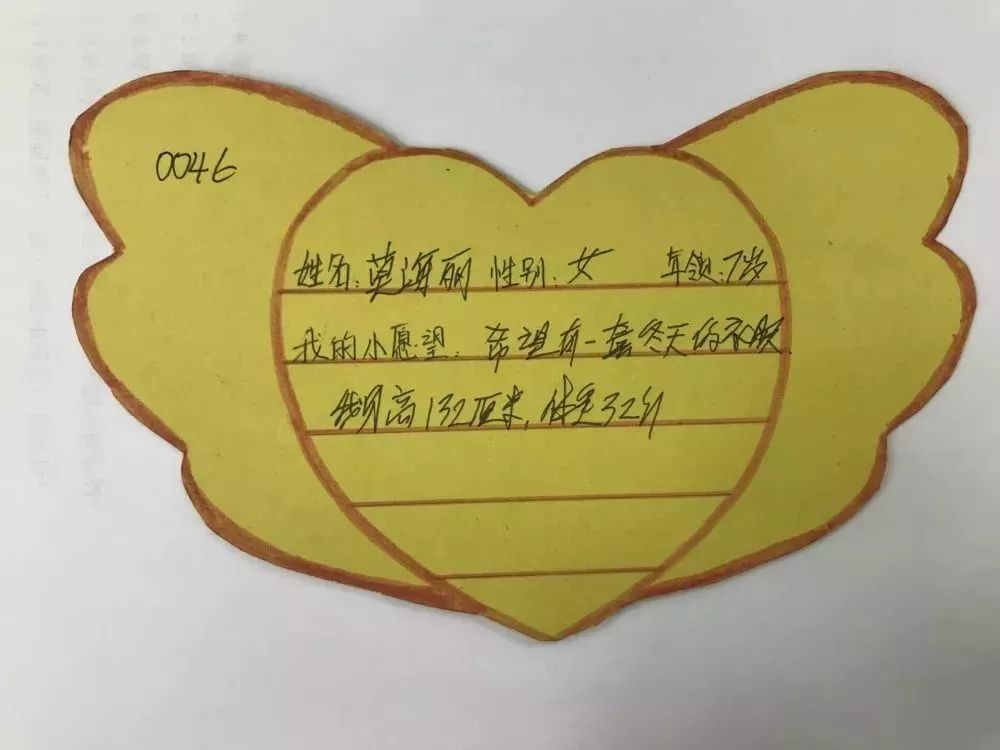 0046
姓名:莫海丽 性别:女 年龄:7岁
我的小愿望:希望有一套冬天的衣服
我身高132厘米,体重32斤